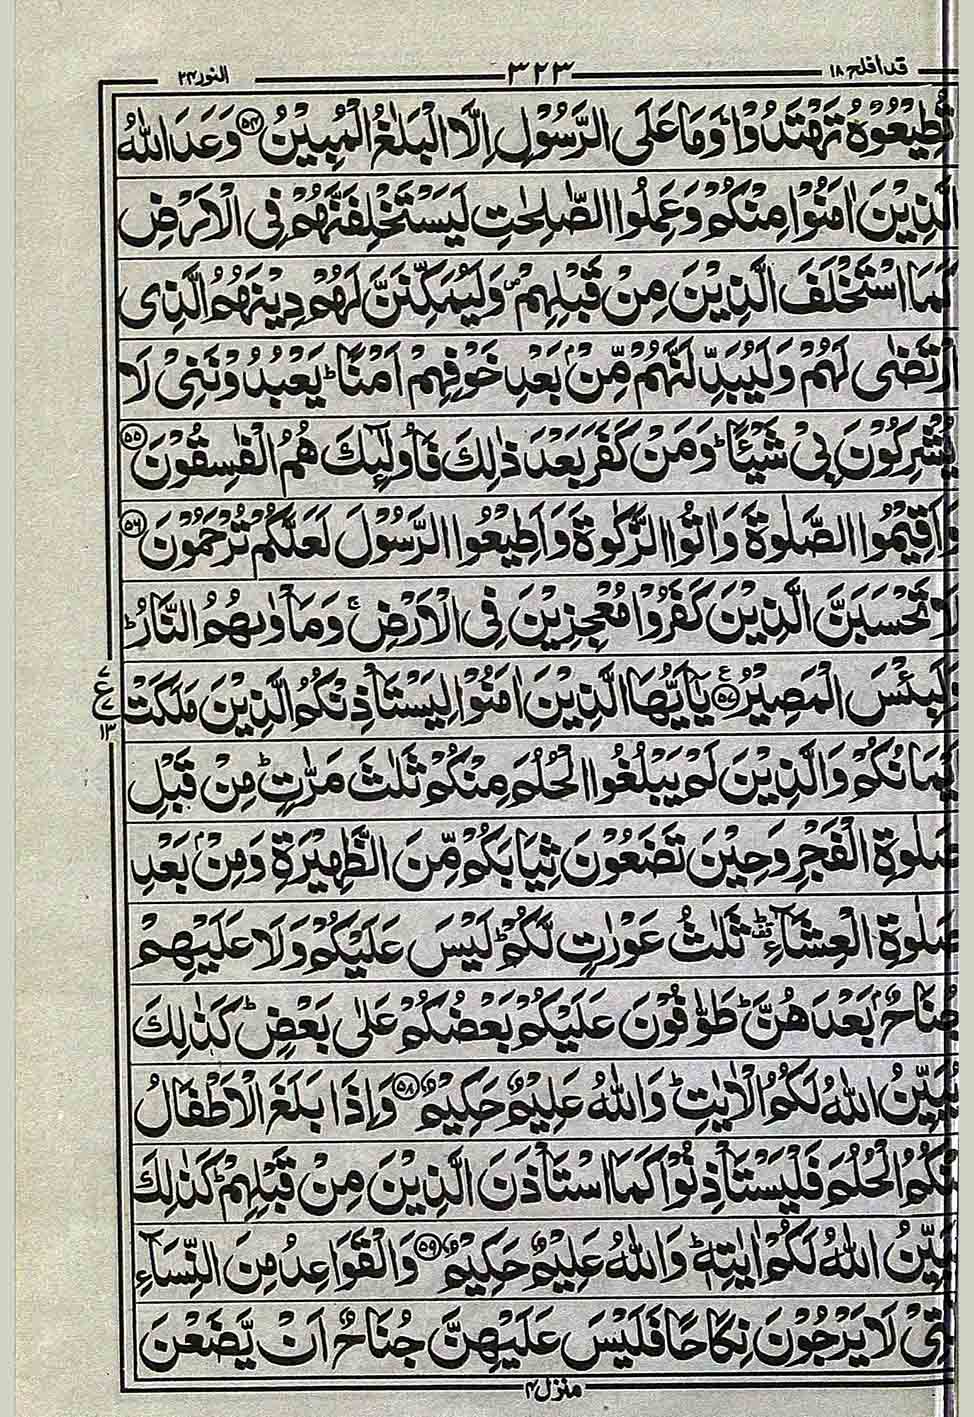 قد افلح ١٨
٣٢٣
النور ٢٤
تُطِيْعُوْهُ تَهْتَدُوْا ؕ وَمَا عَلَى الرَّسُوْلِ اِلَّا الْبَلٰغُ الْمُبِيْنُ ﴿٥٤﴾ وَعَدَ اللّٰهُ
الَّذِيْنَ اٰمَنُوْا مِنْكُمْ وَعَمِلُوا الصّٰلِحٰتِ لَيَسْتَخْلِفَنَّهُمْ فِى الْاَرْضِ
كَمَا اسْتَخْلَفَ الَّذِيْنَ مِنْ قَبْلِهِمْ ۪ وَلَيُمَكِّنَنَّ لَهُمْ دِيْنَهُمُ الَّذِى
ارْتَضٰى لَهُمْ وَلَيُبَدِّلَنَّهُمْ مِّنْۢ بَعْدِ خَوْفِهِمْ اَمْنًا ؕ يَعْبُدُوْنَنِىْ لَا
يُشْرِكُوْنَ بِىْ شَيْـًٔا ؕ وَمَنْ كَفَرَ بَعْدَ ذٰلِكَ فَاُولٰٓئِكَ هُمُ الْفٰسِقُوْنَ ﴿٥٥﴾
وَاَقِيْمُوا الصَّلٰوةَ وَاٰتُوا الزَّكٰوةَ وَاَطِيْعُوا الرَّسُوْلَ لَعَلَّكُمْ تُرْحَمُوْنَ ﴿٥٦﴾
لَا تَحْسَبَنَّ الَّذِيْنَ كَفَرُوْا مُعْجِزِيْنَ فِى الْاَرْضِ ۚ وَمَاْوٰىهُمُ النَّارُ ؕ
وَلَبِئْسَ الْمَصِيْرُ ﴿٥٧﴾ يٰۤاَيُّهَا الَّذِيْنَ اٰمَنُوْا لِيَسْتَاْذِنْكُمُ الَّذِيْنَ مَلَكَتْ
ع ٧ ١٣
اَيْمَانُكُمْ وَالَّذِيْنَ لَمْ يَبْلُغُوا الْحُلُمَ مِنْكُمْ ثَلٰثَ مَرّٰتٍ ؕ مِنْ قَبْلِ
صَلٰوةِ الْفَجْرِ وَحِيْنَ تَضَعُوْنَ ثِيَابَكُمْ مِّنَ الظَّهِيْرَةِ وَمِنْۢ بَعْدِ
صَلٰوةِ الْعِشَآءِ ؕ ثَلٰثُ عَوْرٰتٍ لَّكُمْ ؕ لَيْسَ عَلَيْكُمْ وَلَا عَلَيْهِمْ
جُنَاحٌۢ بَعْدَهُنَّ ؕ طَوّٰفُوْنَ عَلَيْكُمْ بَعْضُكُمْ عَلٰى بَعْضٍ ؕ كَذٰلِكَ
يُبَيِّنُ اللّٰهُ لَكُمُ الْاٰيٰتِ ؕ وَاللّٰهُ عَلِيْمٌ حَكِيْمٌ ﴿٥٨﴾ وَاِذَا بَلَغَ الْاَطْفَالُ
مِنْكُمُ الْحُلُمَ فَلْيَسْتَاْذِنُوْا كَمَا اسْتَاْذَنَ الَّذِيْنَ مِنْ قَبْلِهِمْ ؕ كَذٰلِكَ
يُبَيِّنُ اللّٰهُ لَكُمْ اٰيٰتِهٖ ؕ وَاللّٰهُ عَلِيْمٌ حَكِيْمٌ ﴿٥٩﴾ وَالْقَوَاعِدُ مِنَ النِّسَآءِ
الّٰتِىْ لَا يَرْجُوْنَ نِكَاحًا فَلَيْسَ عَلَيْهِنَّ جُنَاحٌ اَنْ يَّضَعْنَ
منزل ٤